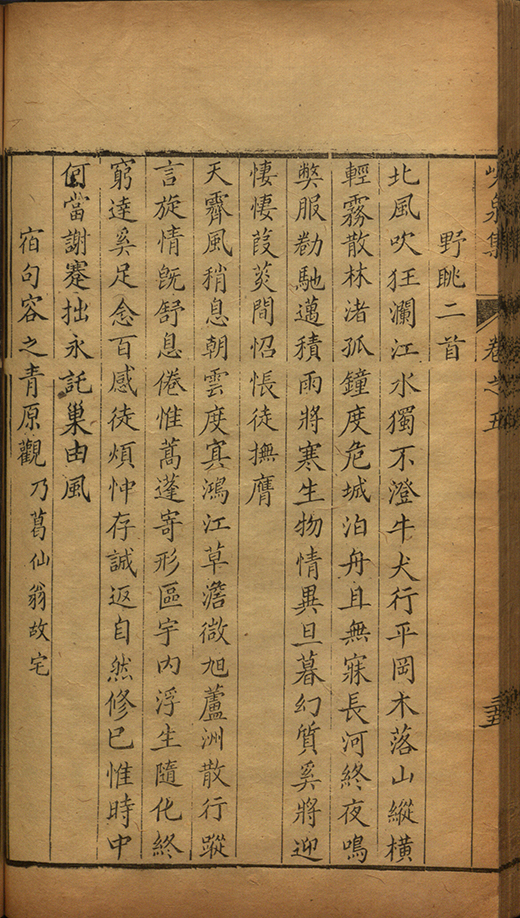 峴泉集 卷之五
野眺二首
北風吹狂瀾江水獨不澄牛犬行平岡木落山縱橫
輕霧散林渚孤鐘度危城泊舟且無寐長河終夜鳴
弊服勌馳邁積雨將寒生物情異旦暮幻質奚將迎
悽悽葭菼間怊悵徒撫膺
天霽風稍息朝雲度寘鴻江草澹微旭蘆洲散行蹤
言旋情旣舒息倦惟蒿蓬寄形區宇内浮生隨化終
窮達奚足念百感徒煩忡存誠返自然修巳惟時中
何當謝蹇拙永託巢由風
宿句容之青原觀乃葛仙翁故宅